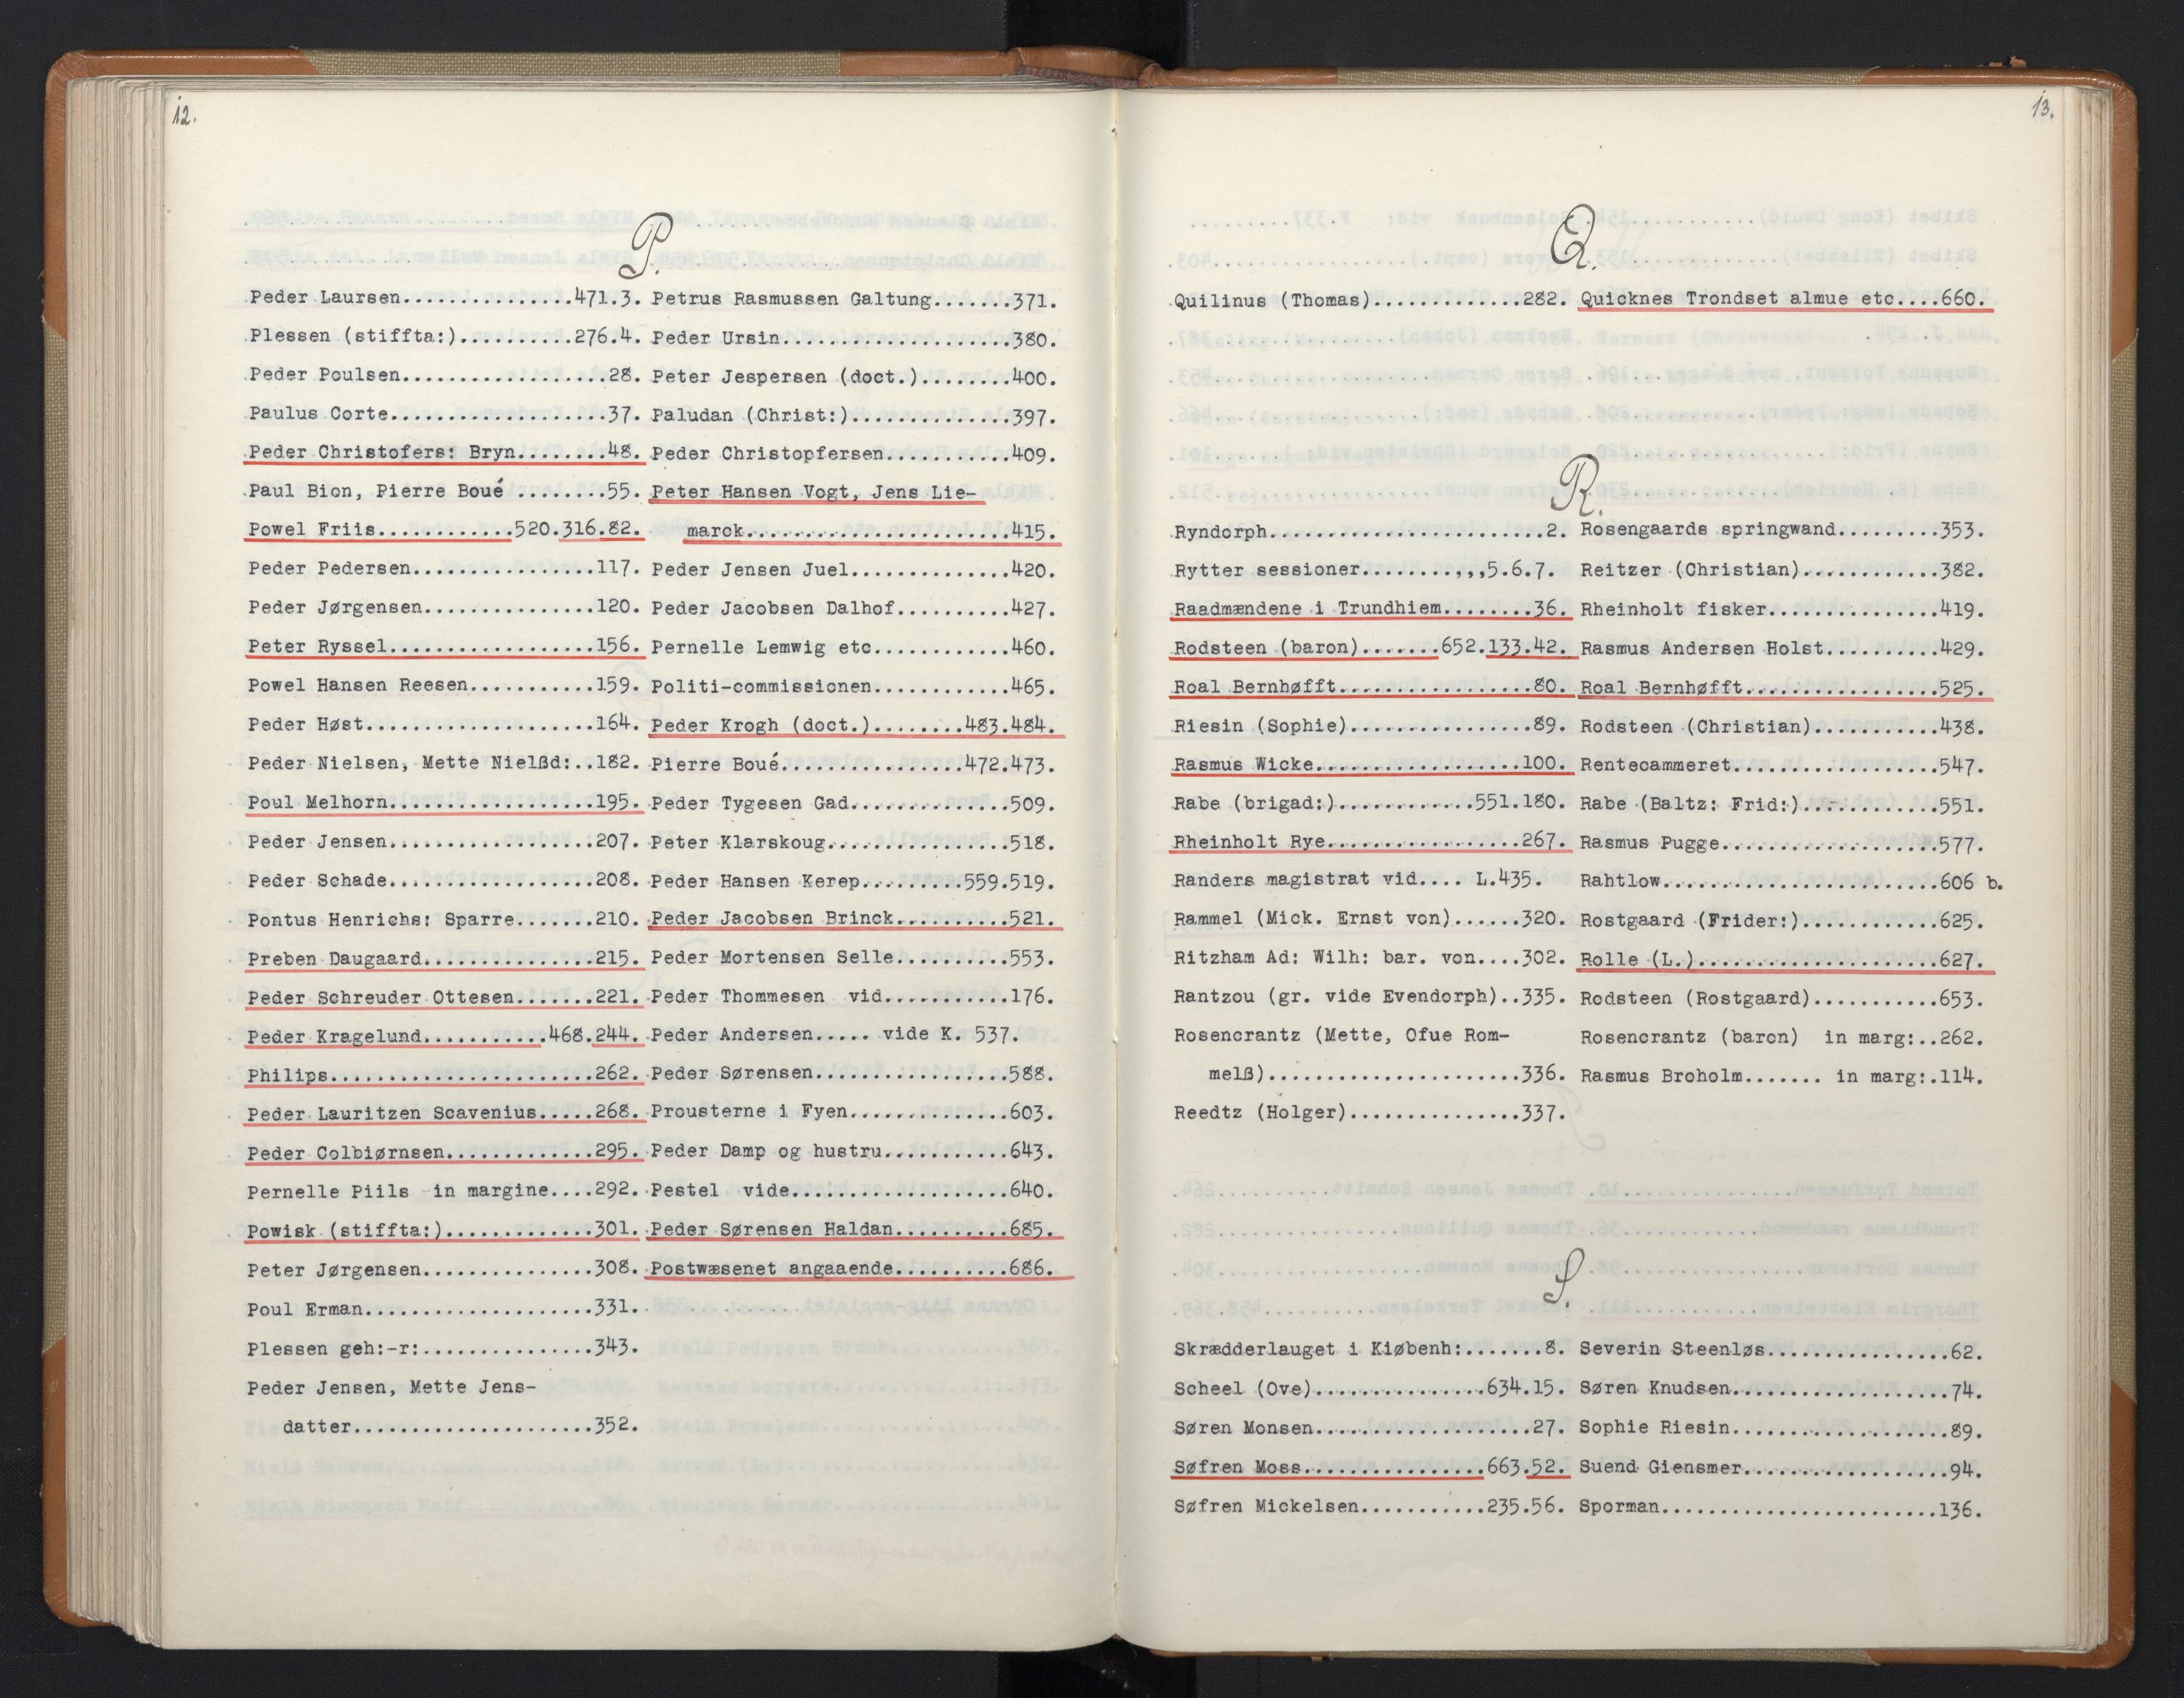 12.
P.
Peder Laursen...............471.3.
Plessen (stiffta:)..........276.4.
Peder Poulsen..................28.
Paulus Corte...................37.
Peder Christofers: Bryn........48.
Paul Bion, Pierre Boué ........55.
Powel Friis............520.316.82.
Peder Pedersen................117.
Peder Jørgensen...............120.
Peter Ryssel..................156.
Powel Hansen Reesen...........159.
Peder Høst....................164.
Peder Nielsen, Mette Nielßd:..182.
Poul Melhorn..................195.
Peder Jensen..................207.
Peder Schade..................208.
Pontus Henrichs: Sparre.......210.
Preben Daugaard...............215.
Peder Schreuder Ottesen.......221.
Peder Kragelund...........468.244.
Philips.......................262.
Peder Lauritzen Scavenius.....268.
Peder Colbiørnsen.............295.
Pernelle Piils in margine....292.
Powisk (stiffta:).............301.
Peter Jørgensen...............308.
Poul Erman....................331.
Plessen geh:-r:...............343.
Peder Jensen, Mette Jens-
datter.....................352.
Petrus Rasmussen Galtung.......371.
Peder Ursin....................380.
Peter Jespersen (doct.)........400.
Paludan (Christ:)..............397.
Peder Christopfersen...........409.
Peter Hansen Vogt, Jens Lie-
marck.......................415.
Peder Jensen Juel..............420.
Peder Jacobsen Dalhof..........427.
Pernelle Lemwig etc............460.
Politi-commissionen............465.
Peder Krogh (doct.)........483.484.
Pierre Boué................472.473.
Peder Tygesen Gad..............509.
Peter Klarskoug................518.
Peder Hansen Kerep.........559.519.
Peder Jacobsen Brinck..........521.
Peder Mortensen Selle..........553.
Peder Thommesen vid...........176.
Peder Andersen..... vide K. 537.
Peder Sørensen.................588.
Prousterne i Fyen..............603.
Peder Damp og hustru...........643.
Pestel vide...................640.
Peder Sørensen Haldan..........685.
Postwæsenet angaaende..........686.
13.
Q.
Quilinus (Thomas).............282.
Quicknes Trondset almue etc....660.
R.
Ryndorph........................2.
Rytter sessioner........,,,5.6.7.
Raadmændene i Trundhiem........36.
Rodsteen (baron).......652.133.42.
Roal Bernhøfft.................80.
Riesin (Sophie)................89.
Rasmus Wicke..................100.
Rabe (brigad:)............551.180.
Rheinholt Rye.................267.
Randers magistrat vid.... L.435.
Rammel (Mick. Ernst von)......320.
Ritzham Ad: Wilh: bar. von....302.
Rantzou (gr. vide Evendorph)..335.
Rosencrantz (Mette, Ofue Rom-
melß)......................336.
Reedtz (Holger)...............337.
Rosengaards springwand.........353.
Reitzer (Christian)............382.
Rheinholt fisker...............419.
Rasmus Andersen Holst..........429.
Roal Bernhøfft.................525.
Rodsteen (Christian)...........438.
Rentecammeret..................547.
Rabe (Baltz: Frid:)............551.
Rasmus Pugge...................577.
Rahtlow........................606 b.
Rostgaard (Frider:)............625.
Rolle (L.).....................627.
Rodsteen (Rostgaard)...........653.
Rosencrantz (baron) in marg:..262.
Rasmus Broholm....... in marg:.114.
S.
Skrædderlauget i Kiøbenh:.......8.
Scheel (Ove)...............634.15.
Søren Monsen...................27.
Søfren Moss................663.52.
Søfren Mickelsen...........235.56.
Severin Steenløs................62.
Søren Knudsen...................74.
Sophie Riesin...................89.
Suend Giensmer..................94.
Sporman........................136.